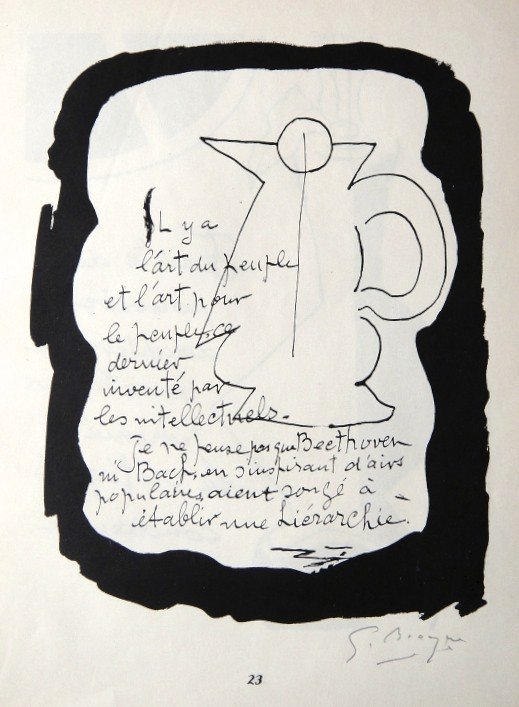 IL y a
l'art du peuple
et l'art pour
le peuple, ce
dernier
inventé par
les intellectuels.
Je ne pense pas que Beethoven
ni Bach, en s'inspirant d'airs
populaires, aient songé à
établir une hiérarchie.
G. Braque
23